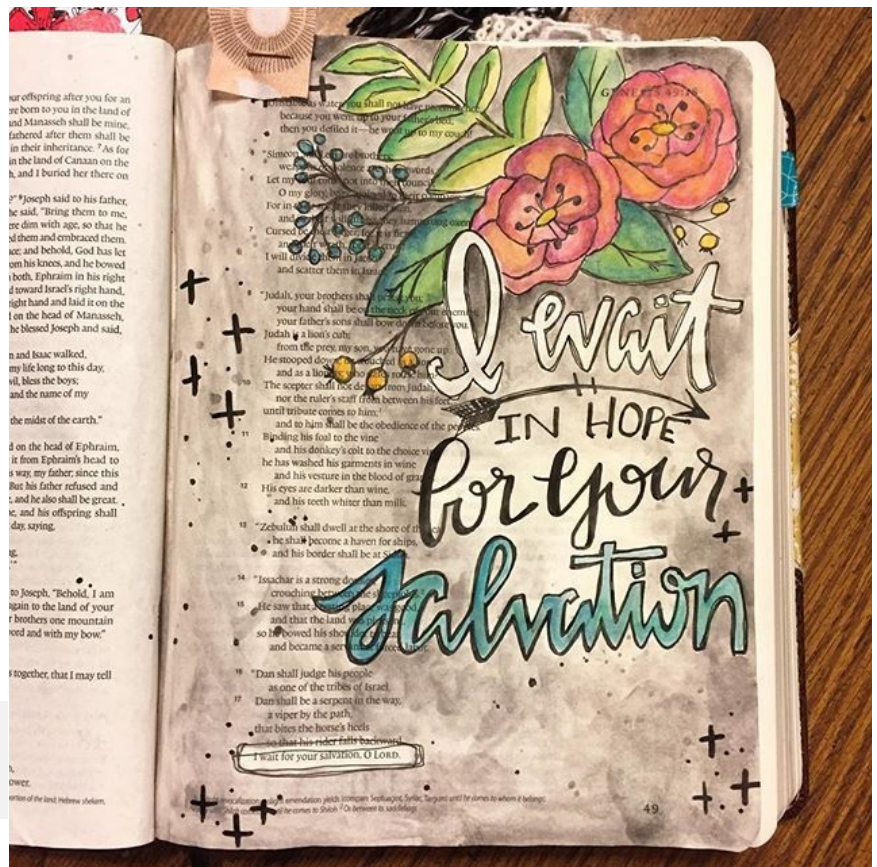 ur offspring after you for an
re born to you in the land of
nd Manasseh shall be mine,
fathered after them shall be
in their inheritance. 7 As for
in the land of Canaan on the
h, and I buried her there on
8 Joseph said to his father,
he said, "Bring them to me,
re dim with age, so that he
d them and embraced them.
ce; and behold, God has let
om his knees, and he bowed
both, Ephraim in his right
d toward Israel's right hand,
right hand and laid it on the
on the head of Manasseh,
he blessed Joseph and said,
n and Isaac walked,
my life long to this day,
vil, bless the boys;
and the name of my
the midst of the earth."
d on the head of Ephraim,
it from Ephraim's head to
s way, my father; since this
But his father refused and
, and he also shall be great.
e, and his offspring shall
day, saying,
to Joseph, "Behold, I am
gain to the land of your
r brothers one mountain
ord and with my bow."
s together, that I may tell
ower,
GENESIS 49:18
as water, you shall not have
because you went up to your father's bed;
then you defiled it—he went up to my couch!
5 "Simeon and Levi are brothers;
weapons of violence are their swords.
6 Let my soul come not into their council;
O my glory, be not
For in their
and
7 Cursed be their
and their wrath,
I will divide them in Jacob
and scatter them in Israel.
8 "Judah, your brothers shall praise you;
your hand shall be on the neck of your enemies;
your father's sons shall bow down before you.
9 Judah is a lion's cub;
from the prey, my son, you have gone up.
He stooped down; he crouched as a lion
and as a lioness; who dares rouse him?
10 The scepter shall not depart from Judah,
nor the ruler's staff from between his feet,
until tribute comes to him;
and to him shall be the obedience of the peoples.
11 Binding his foal to the vine
and his donkey's colt to the choice vine,
he has washed his garments in wine
and his vesture in the blood of grapes.
12 His eyes are darker than wine,
and his teeth whiter than milk.
13 "Zebulun shall dwell at the shore of the sea;
he shall become a haven for ships,
and his border shall be at Sidon.
14 "Issachar is a strong donkey,
crouching between the sheepfolds.
15 He saw that a resting place was good,
and that the land was pleasant,
so he bowed his shoulder to bear,
and became a servant at forced labor.
16 "Dan shall judge his people
as one of the tribes of Israel.
17 Dan shall be a serpent in the way,
a viper by the path,
that bites the horse's heels
so that his rider falls backward.
I wait for your salvation, O LORD.
49
I wait
IN HOPE
for your
salvation